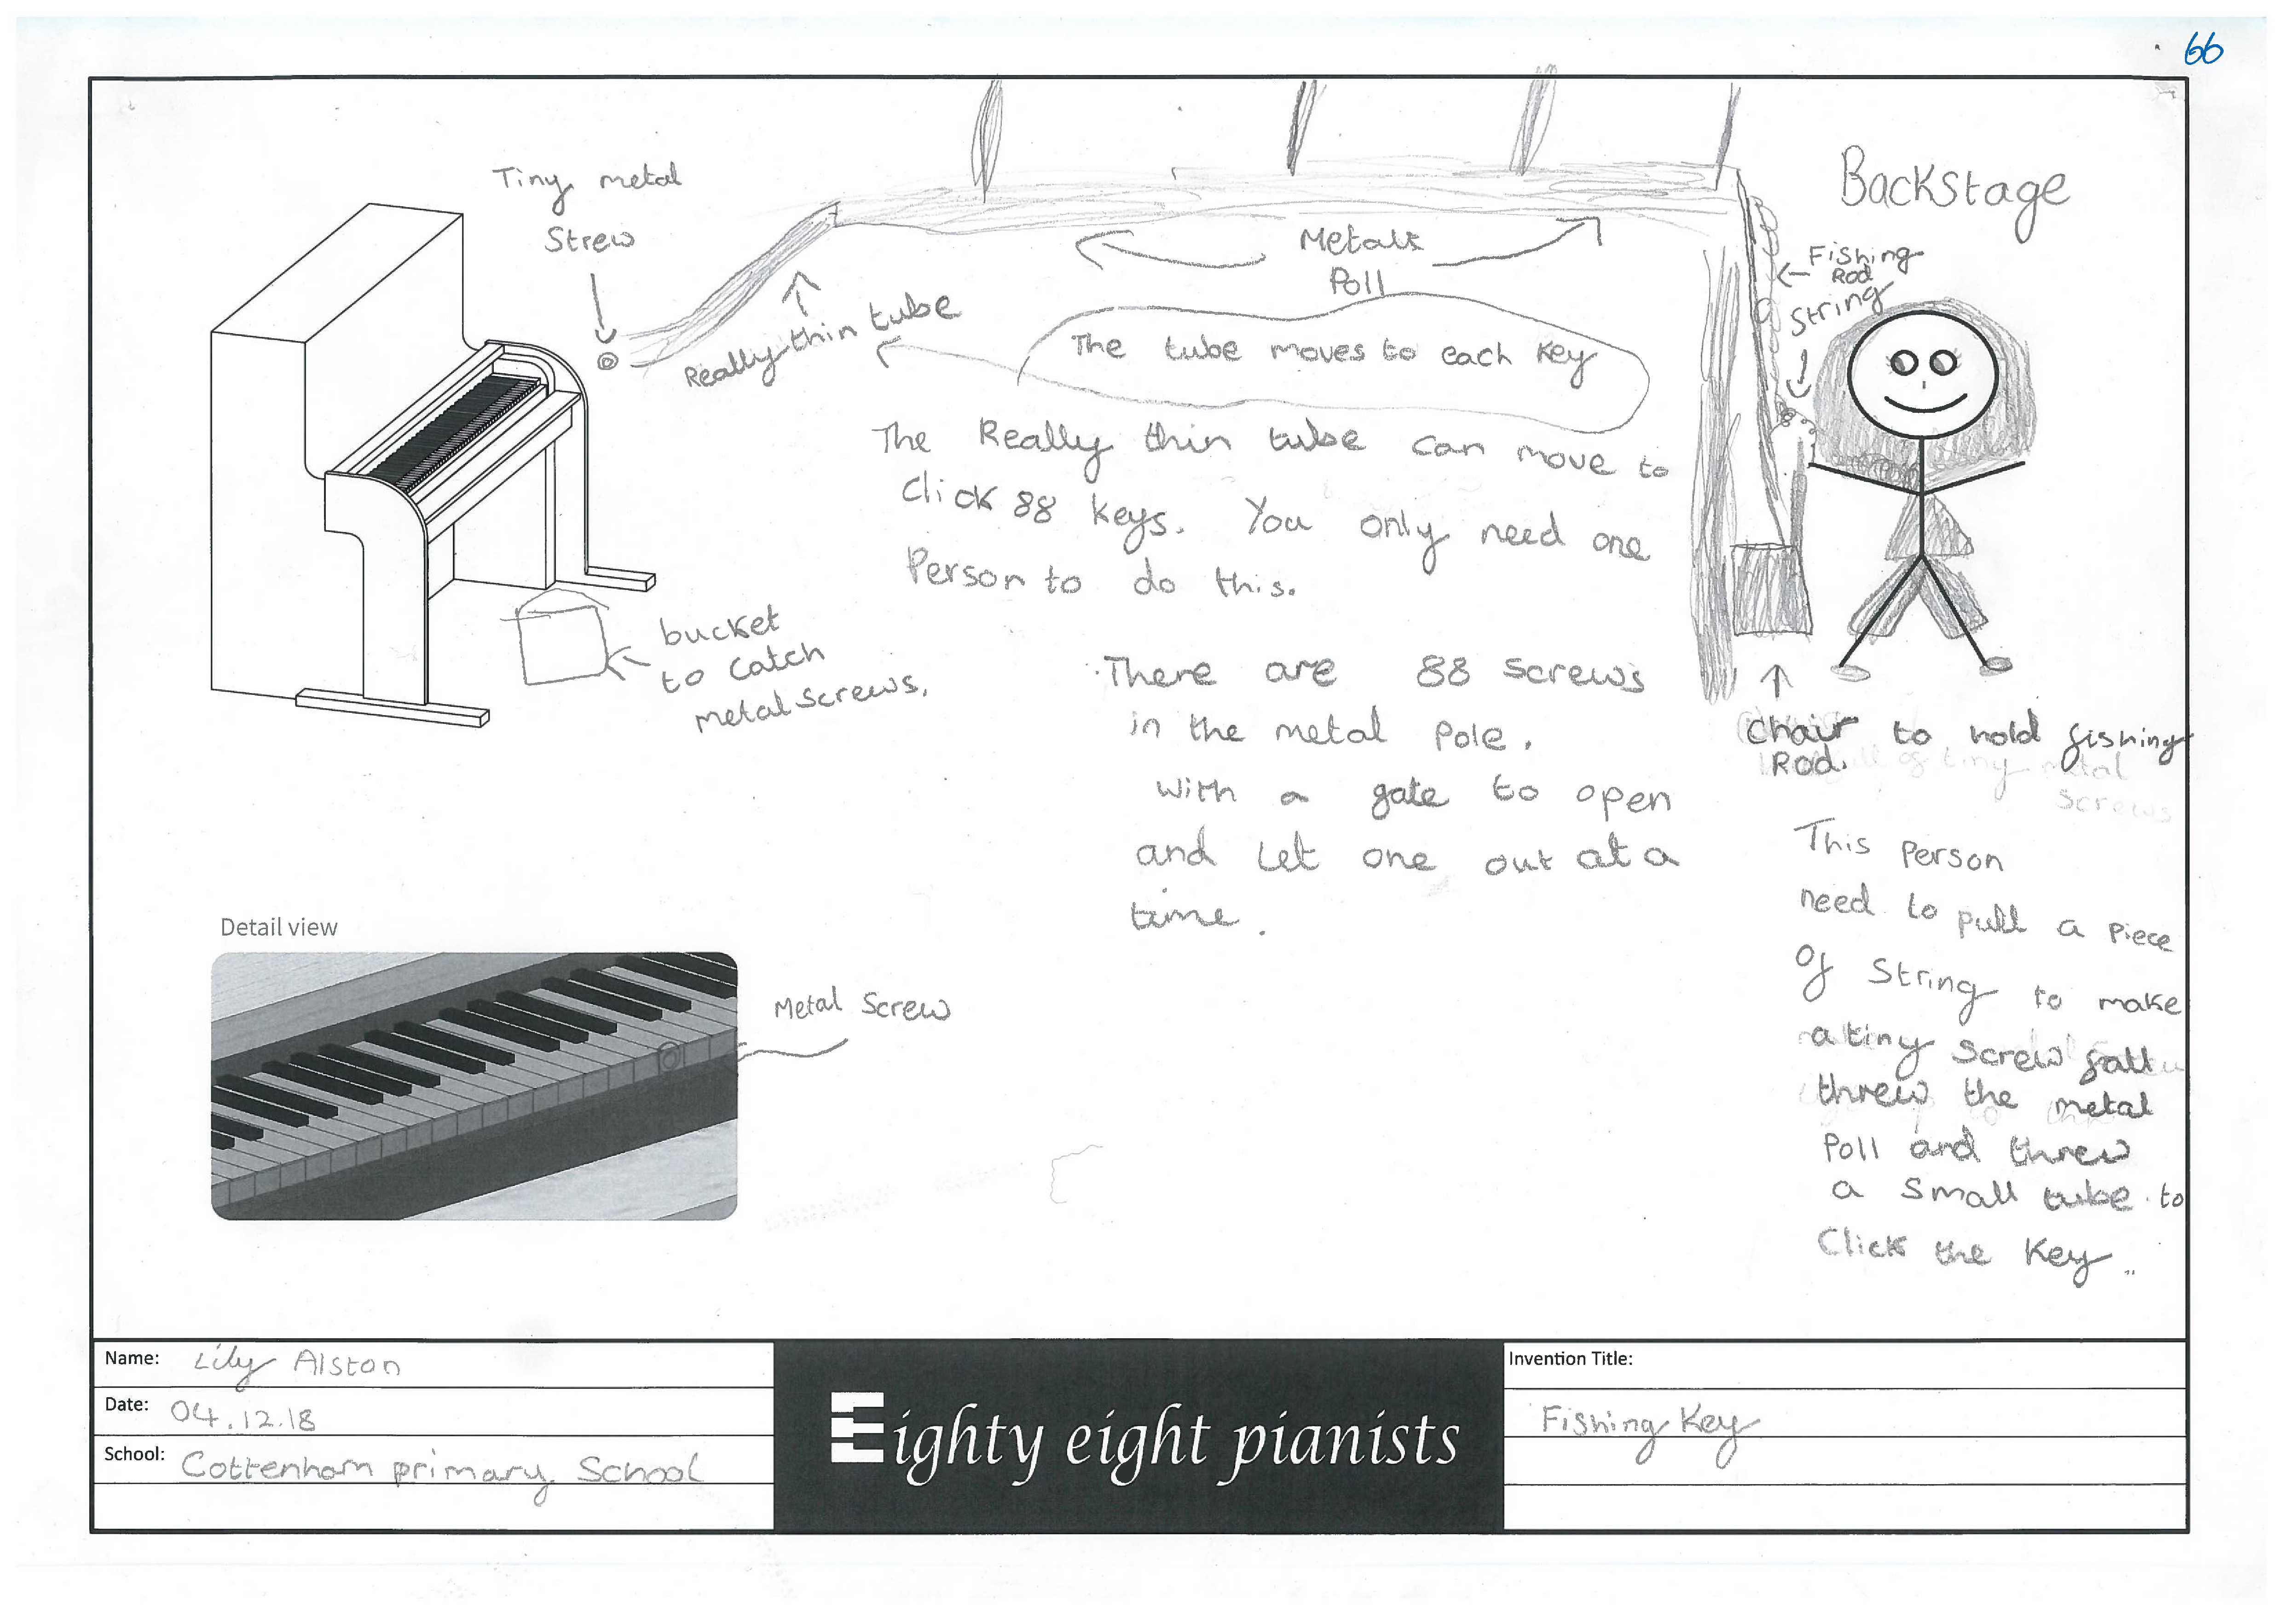 66
Tiny metal
Strew
Backstage
Fishing
Rod
String
Metalk
Poll
Really thin tube
The tube moves to each key
The Really thin tube can move to
click 88 keys. You only need one
Person to do this.
bucket
to catch
metal screws.
There are 88 screws
in the metal Pole.
with a gate to open
and Let one out at a
time.
Chair to hold fishing
Rod.
of tiny metal
screws
This Person
need to pull a Piece
of String to make
a tiny screw fall
threw the metal
Poll and threw
a small tube to
Click the Key
Detail view
Metal Screw
Name: Lily Alston
Date: 04.12.18
School: Cottenham primary School
Eighty eight pianists
Invention Title:
Fishing Key